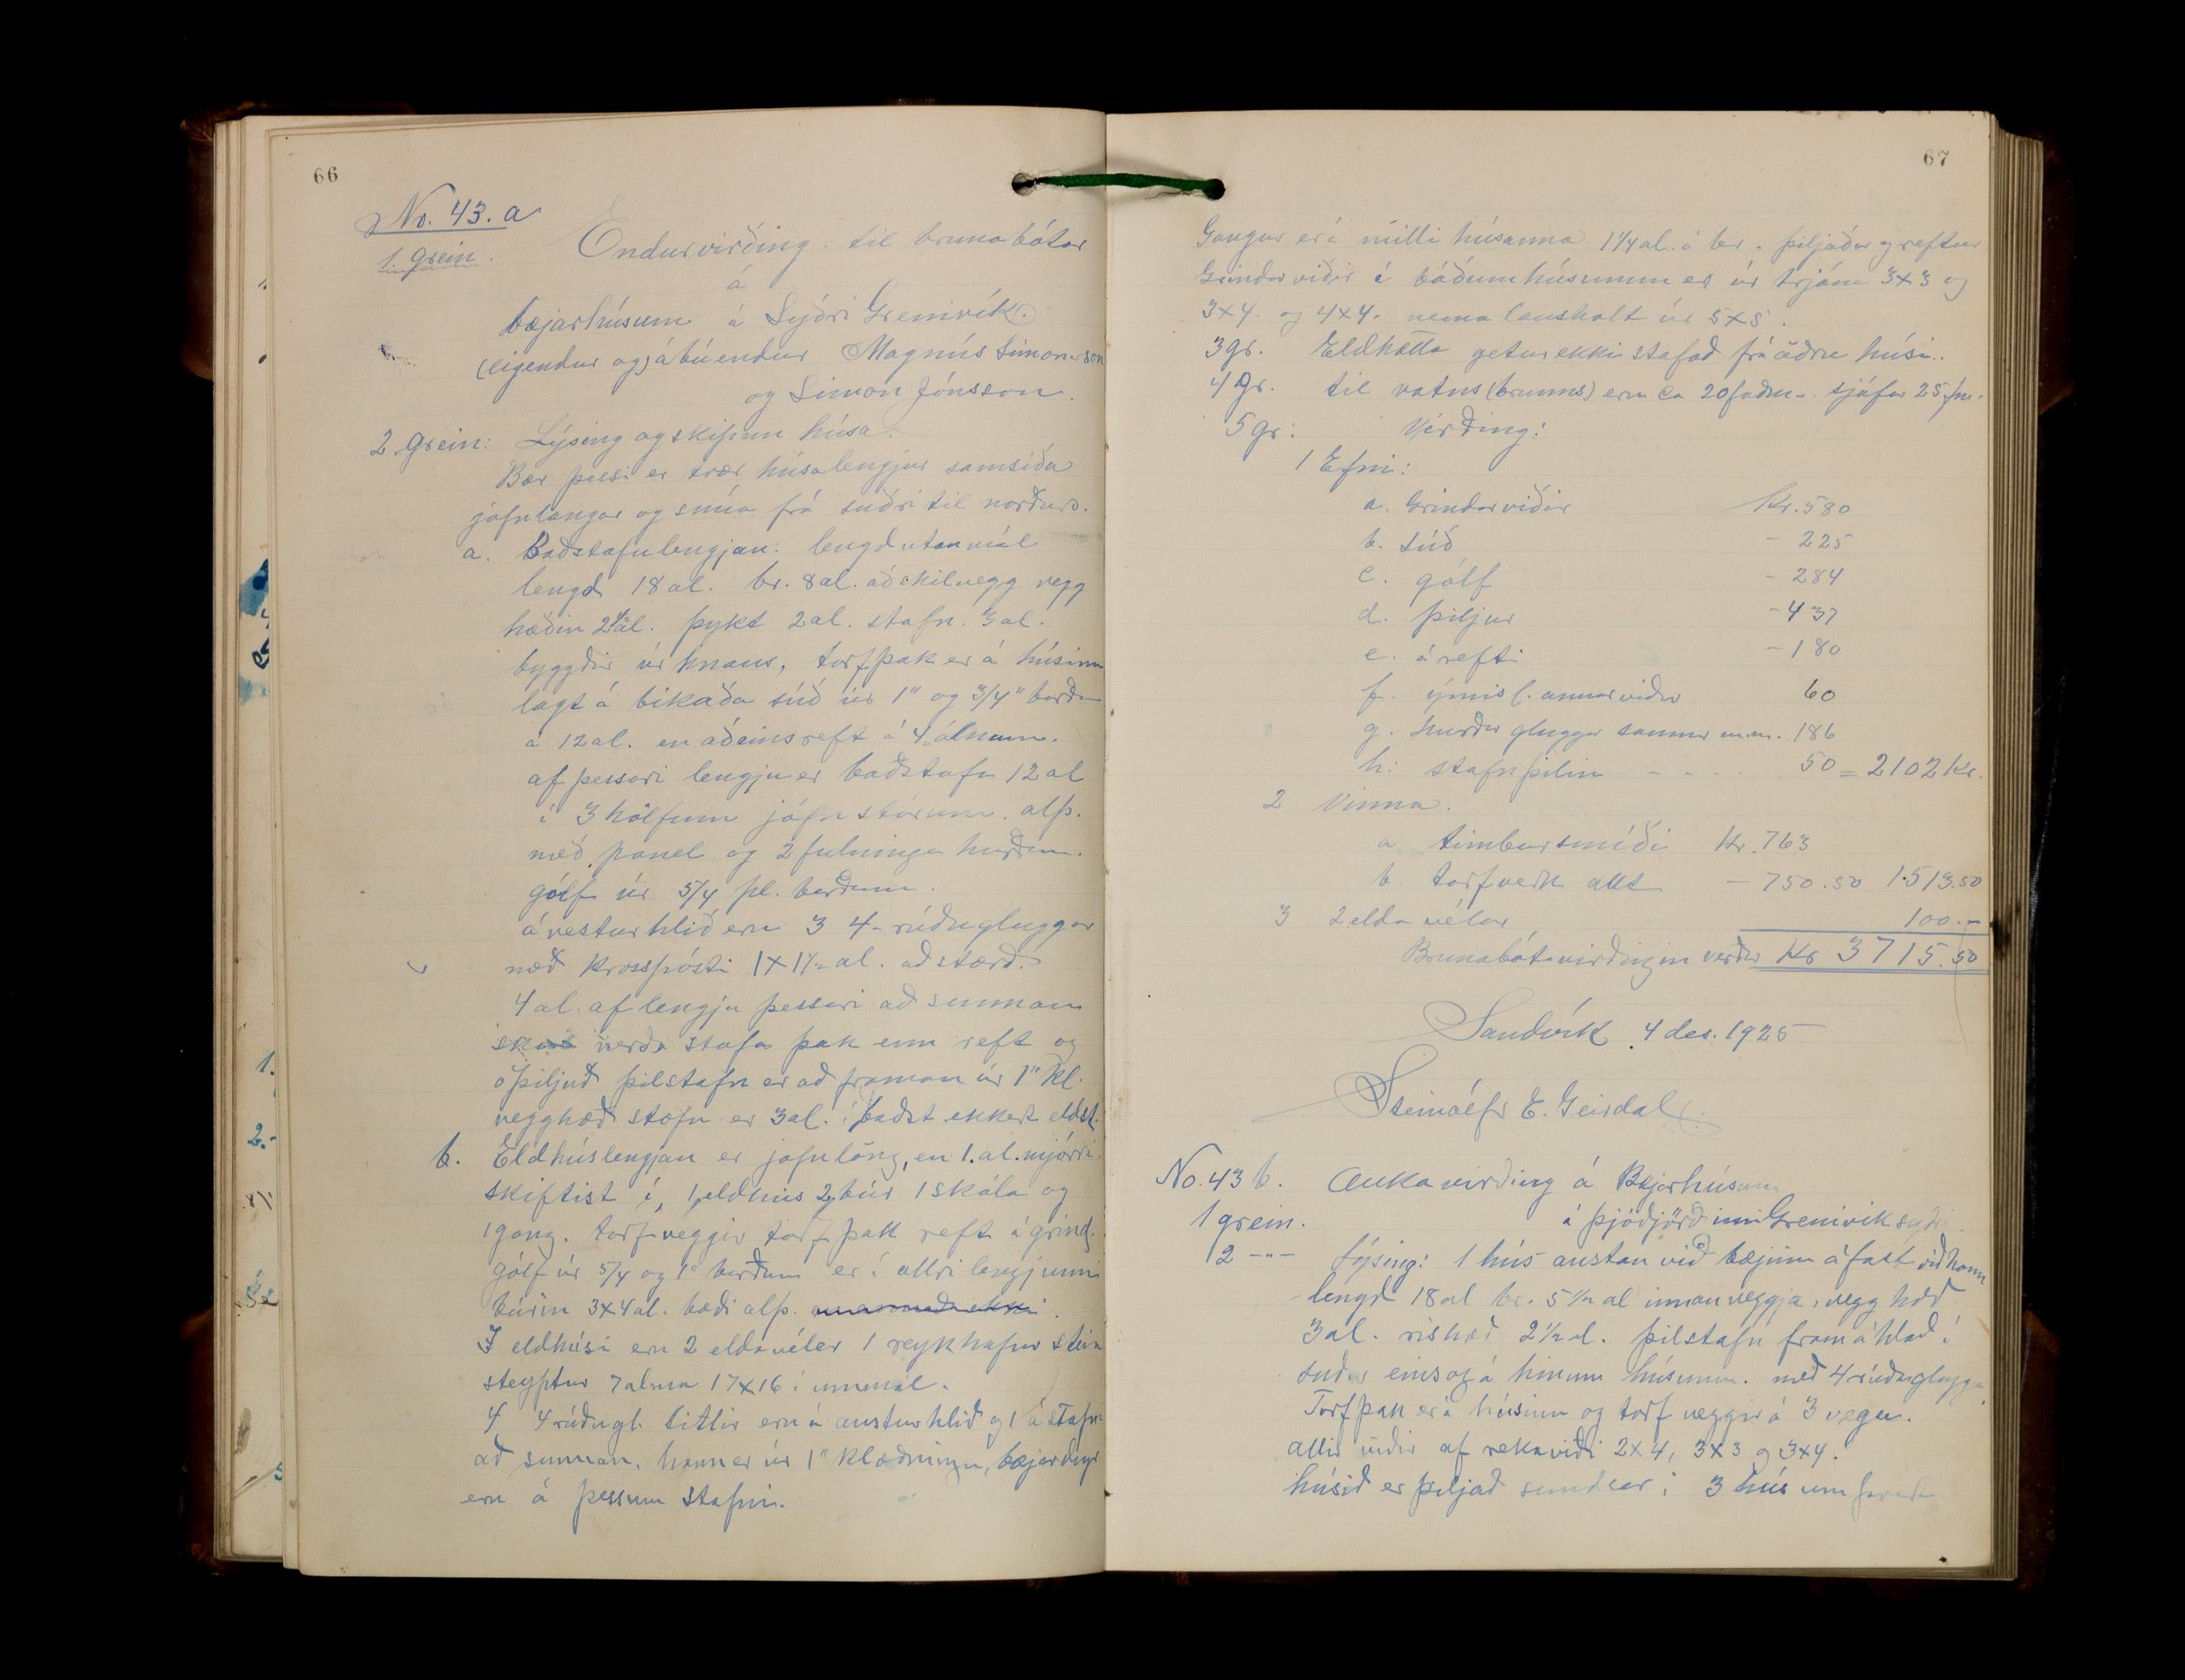 66
No. 43. a
1. grein.
Endurvirðing til brunabótar
á
bæjarhúsum á Syðri Grenivík.
(eigendur og) ábúendur Magnús Símonarson
og Símon Jónsson.
2 grein: Lýsing og skipun húsa.
Bær þessi er tvær húsalengjur samsíða
jafnlangar og snúa frá suðri til norðurs.
a. Baðstofulengjan: lengd utanmál
lengd 18 al. br. 8 al. að skilvegg vegg
hæðin 2 1/4 al. þykt 2 al. stafn. 3 al.
byggðir úr hnaus, torfþak er á húsinu
lagt á bikaða súð úr 1" og 3/4" borðum
á 12 al. en aðeins reft á 4 álnum.
af þessari lengju er baðstofa 12 al
í 3 hólfum jafn stórum. alþ.
með panel og 2 fulninga hurðum.
gólf úr 5/4 pl. borðum.
á vesturhlið eru 3 4-rúðugluggar
með krosspósti 1x1 1/2 al. að stærð.
4 al. af lengju þessari að sunnan
verða stofa þak enn reft og
óþiljuð þilstafn er að framan úr 1" kl.
vegghæð stofu er 3 al. í baðst ekkert eldst.
b. Eldhúslengjan er jafnlöng, en 1. al. mjórri.
skiftist í, 1 eldhús 2 búr 1 skála og
1 gang. torfveggir torfþak reft á grind.
gólf úr 5/4 og 1" borðum er í allri lengjunni
búrin 3x4 al. bæði alþ.
Í eldhúsi eru 2 eldavélar 1 reykháfur stein
steyptur 7 alna 17x16 í ummál.
4 4 rúðugl. litlir eru á austurhlið og 1 á stafni
að sunnan. hann er úr 1" klæðningu, bæjardyr
eru á þessum stafni.
67
Gangur er á milli húsanna 1 1/4 al. á br. þiljaður og reftur
Grindarviðir í báðum húsunum er úr trjám 3x3 og
3x4. og 4x4. nema lausholt úr 5x5.
3 gr. Eldhætta getur ekki stafað frá öðru húsi.
4 gr. til vatns (brunns) eru ca 20 faðm. sjáfar 25 fm.
5 gr: Virðing:
1 Efni:
a. Grindarviðir Kr. 580
b. súð - 225
c. gólf - 284
d. þiljur - 437
e. árefti - 180
f. ýmisl. annar viður 60
g. hurðir gluggar saumur m.m. 186
h: stafnþilin - - . . 50 = 2102 Kr.
2 Vinna.
a timbursmíði Kr. 763
b. torfverk allt - 750.50 1.513.50
3 2 eldavélar 100.-
Brunabótavirðingin verður Kr 3715.50
Sandvík 4 des. 1925
Steinólfr E. Geirdal
No. 43 b. Aukavirðing á Bæjarhúsum
1 grein. á þjóðjörðinni Grenivík syðri
2 -"- Lýsing: 1 hús austan við bæjinn áfast við hann
lengd 18 al br. 5 1/2 al innan veggja, vegg hæð
3 al. rishæð 2 1/2 al. þilstafn fram á hlað í
suður eins og á hinum húsunum. með 4 rúðuglugga
Torfþak er á húsinu og torf veggir á 3 vegu.
allir viðir af rekaviði 2x4, 3x3 og 3x4.
húsið er þiljað sundur í 3 hús um